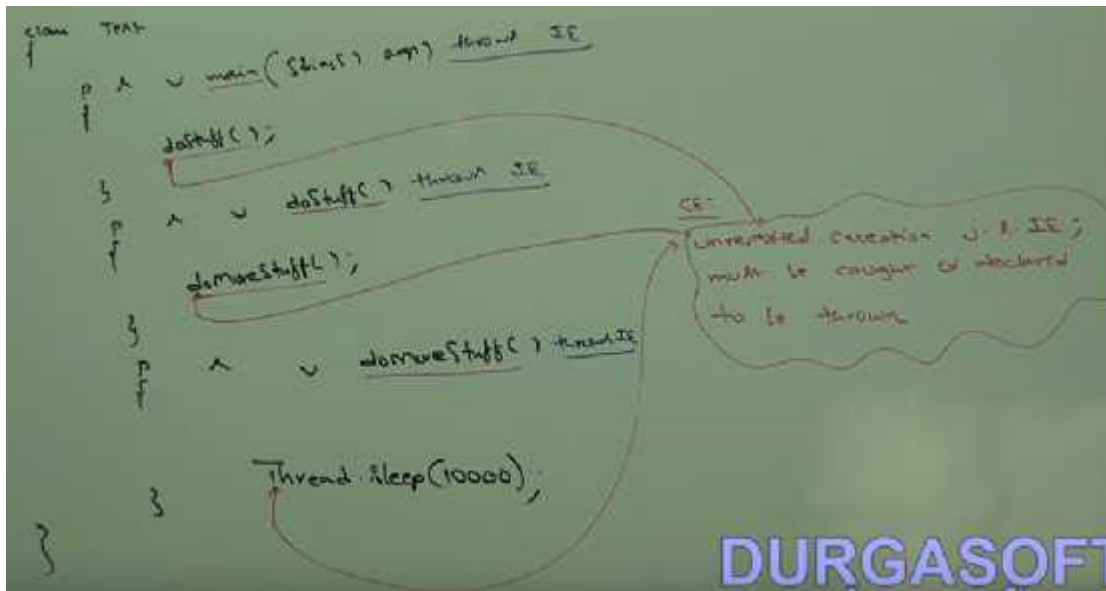 class Test
{
p s v main(String[] args) throws IE
{
doStuff();
}
p s v doStuff() throws IE
{
doMoreStuff();
}
p s v doMoreStuff() throws IE
{
Thread.sleep(10000);
}
}
CE:
unreported exception j.l.IE;
must be caught or declared
to be thrown
DURGASOFT